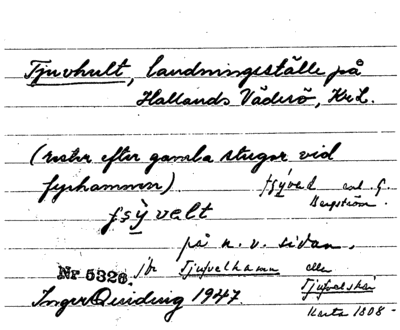 Tjuvhult, landningsställe på
Hallands Väderö, Kr.L.
(rester efter gamla stugor vid
fyrhamnen) enl. G.
Bergström.
på n. v. sidan.
Nr 5326. jfr Tjufvelhamn eller
Inger Quiding 1947.
Karta 1808 -